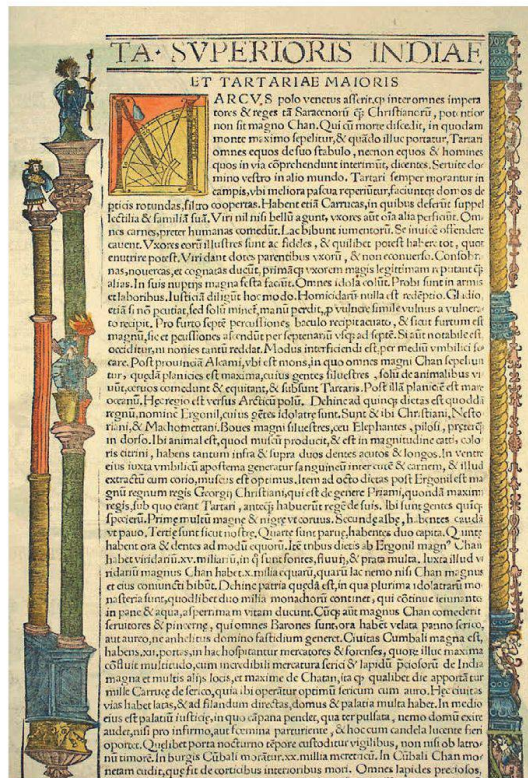 TA· SVPERIORIS INDIAE
ET TARTARIAE MAIORIS
MARCVS polo venetus asserit, ꝙ inter omnes impera
tores & reges tā Saracenorū ꝙ̄ Christianorū, potentior
non sit magno Chan. Qui cū morte discedit, in quodam
monte maximo sepelitur, & quādo illuc portatur, Tartari
omnes equos de suo stabulo, necnon equos & homines
quos in via cōprehendunt interimūt, dicentes, Seruite do
mino vestro in alio mundo. Tartari semper morantur in
campis, vbi meliora pascua reperiūtur, faciuntq; domos de
pticis rotundas, filtro coopertas. Habent etiā Carrucas, in quibus deferūt suppel
lectilia & familiā suā. Viri nil nisi bellū agunt, vxores aūt oīa alia perficiūt. Om
nes carnes, preter humanas comedūt. Lac bibunt iumentorū. Se inuicē offendere
cauent. Vxores eorū illustres sunt ac fideles, & quilibet potest habere tot, quot
enutrire potest. Viri dant dotes parentibus vxorū, & non econuerso. Consobri
nas, nouercas, et cognatas ducūt, primāq; vxorem magis legittimam reputant ꝙ̄
alias. In suis nuptijs magna festa faciūt. Omnes idola colūt. Probi sunt in armis
et laboribus. Iusticiā diligūt hoc modo. Homicidarū nulla est redēptio. Gladio,
etiā si nō peutiat, sed solū minet, manū perdit, ꝓ vulnere simile vulnus a vulnera
to recipit. Pro furto septē percussiones baculo recipit acuato, & sicut furtum est
magnū, sic et pcussiones ascendūt per septenarū vsq; ad septē. Si aūt notabile est
occiditur, ni nonies tantū reddat. Modus interficiendi est, per mediū vmbilici se
care. Post prouinciā Alanni, vbi est mons, in quo omnes magni Chan sepeliun
tur, quędā planicies est maxima, cuius gentes siluestres, solū de animalibus vi
uūt, ceruos comedunt & equitant, & subsunt Tartaris. Post illā planiciē est mare
oceanū. Hęc regio est versus Arcticū polū. Dehinc ad quinq; dietas est quoddā
regnū, nomine Ergonil, cuius gētes idolatre sunt. Sunt & ibi Christiani, Nesto
riani, & Machomettani. Boues magni siluestres, ceu Elephantes, pilosi, pręterꝙ̄
in dorso. Ibi animal est, quod muscū producit, & est in magnitudine catti, colo
ris citrini, habens tantum infra & supra duos dentes acutos & longos. In ventre
eius iuxta vmbilicū apostema generatur sanguineū inter cutē & carnem, & illud
extractū cum corio, muscus est optimus. Item ad octo dietas post Ergonil est ma
gnū regnum regis Georgij Christiani, qui est de genere Priami, quondā maximi
regis, sub quo erant Tartari, anteꝙ̄ habuerūt regē de suis. Ibi sunt gentes quinq;
specierū. Prime multū magne & nigre vt coruus. Secunde albe, habentes caudā
vt pauo. Tertie sunt sicut nostre. Quarte sunt parue, habentes duo capita. Quinte
habent ora & dentes ad modū equorū. Itē tribus dietis ab Ergonil magnꝰ Chan
habet viridariū .xv. miliariū, in quo sunt fontes, fluuij, & prata multa. Iuxta illud vi
ridariū magnus Chan habet .x. milia equarū, quarū lac nemo nisi Chan magnus
et eius coniuncti bibūt. Dehinc patria quędā est, in qua plurima idolatrarū mo
nasteria sunt, quodlibet duo milia monachorū continet, qui cōtinue ieiunant
in pane & aqua, asperrimam vitam ducunt. Cūq; aūt magnus Chan comederit
seruitores & pincerne, qui omnes Barones sunt, ora habēt velata panno serico,
aut aureo, ne anhelitus domino fastidium generet. Ciuitas Cumbali magna est,
habens .xii. portas, in hac hospitantur mercatores & forenses, quorū illuc maxima
cōfluit multitudo, cum incredibili mercatura serici & lapidū ꝑciosorū de India
magna et multis alijs locis, et maxime de Chatan, ita ꝙ qualibet die apportātur
mille Carrucę de serico, quia ibi operātur optimū sericum cum auro. Hęc ciuitas
vias habet latas, & ad filandum directas, domus & palatia multa habet. In medio
eius est palatiū iusticie, in quo cāpana pendet, qua ter pulsata, nemo domū exire
audet, nisi pro infirmo, aut foemina parturiente, & hoc cum candela lucente fieri
oportet. Quelibet porta nocturno tēpore custoditur vigilibus, non nisi ob latro
nū timorē. In burgis Cūbali morātur .xx. millia meretricū. In Cūbali Chan mo
netam cudit, que fit de corticibus interioribus mori. Omnes lapides preciosos,